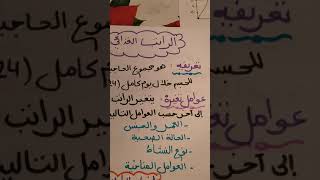 الراتب الغذائي
تعريفه : هو مجموع الحاجيات
للجسم خلال يوم كامل (24
عوامل تغيره : يتغير الراتب
إلى آخر حسب العوامل التالية
- العمر والجنس
- الحالة الصحية
- نوع النشاط
- العوامل المناخية